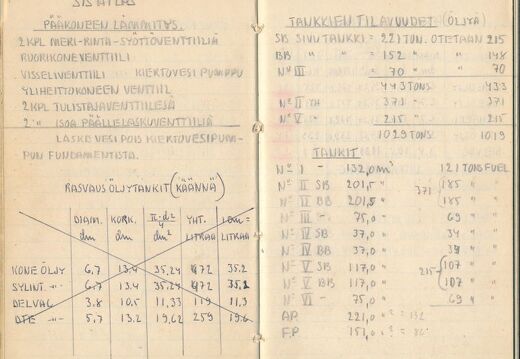 S/S ATLAS
PÄÄKONEEN LÄMMITYS.
2 KPL MERI-RINTA-SYÖTTÖVENTTIILIÄ
RUORIKONEVENTTIILI
VISSELIVENTTIILI KIERTOVESI PUMPPU
YLIHEITTOKONEEN VENTTIIL
2 KPL TULISTAJAVENTTIILEJÄ
2 " ISOA PÄÄLLELASKUVENTTIILIÄ
LASKE VESI POIS KIERTOVESIPUM-
PUN FUNDAMENTISTA.
RASVAUSÖLJYTANKIT (KÄÄNNÄ)
DIAM. dm KORK. dm π·d²/4 dm² YHT. LITRAA 1 cm = LITRAA
KONEÖLJY 6,7 13,4 35,24 472 35,2
SYLINT. -"- 6,7 13,4 35,24 472 35,2
DELVAC 3,8 10,5 11,33 119 11,3
DTE -"- 5,7 13,2 19,62 259 19,6
TANKKIEN TILAVUUDET (ÖLJYÄ)
SB SIVUTANKKI = 221 TON. OTETAAN 215
BB " " = 152 " " 148
Nº III = 70 " " 70
443 TONS. 433
Nº II YH 371 " " 371
Nº V " 215 " " 215
1029 TONS. 1019
TANKIT
Nº I - 132,0 m³ 121 TONS FUEL
Nº II SB 201,5 " 371 (185 "
Nº II BB 201,5 " (185 "
Nº III -. 75,0 " 69 "
Nº IV SB 37,0 " 34 "
Nº IV BB 37,0 " 34 "
Nº V SB 117,0 " 215 (107 "
Nº V BB 117,0 " (107 "
Nº VI - 75,0 " 69 "
AP. 221,0 "
F.P. 151,0 "